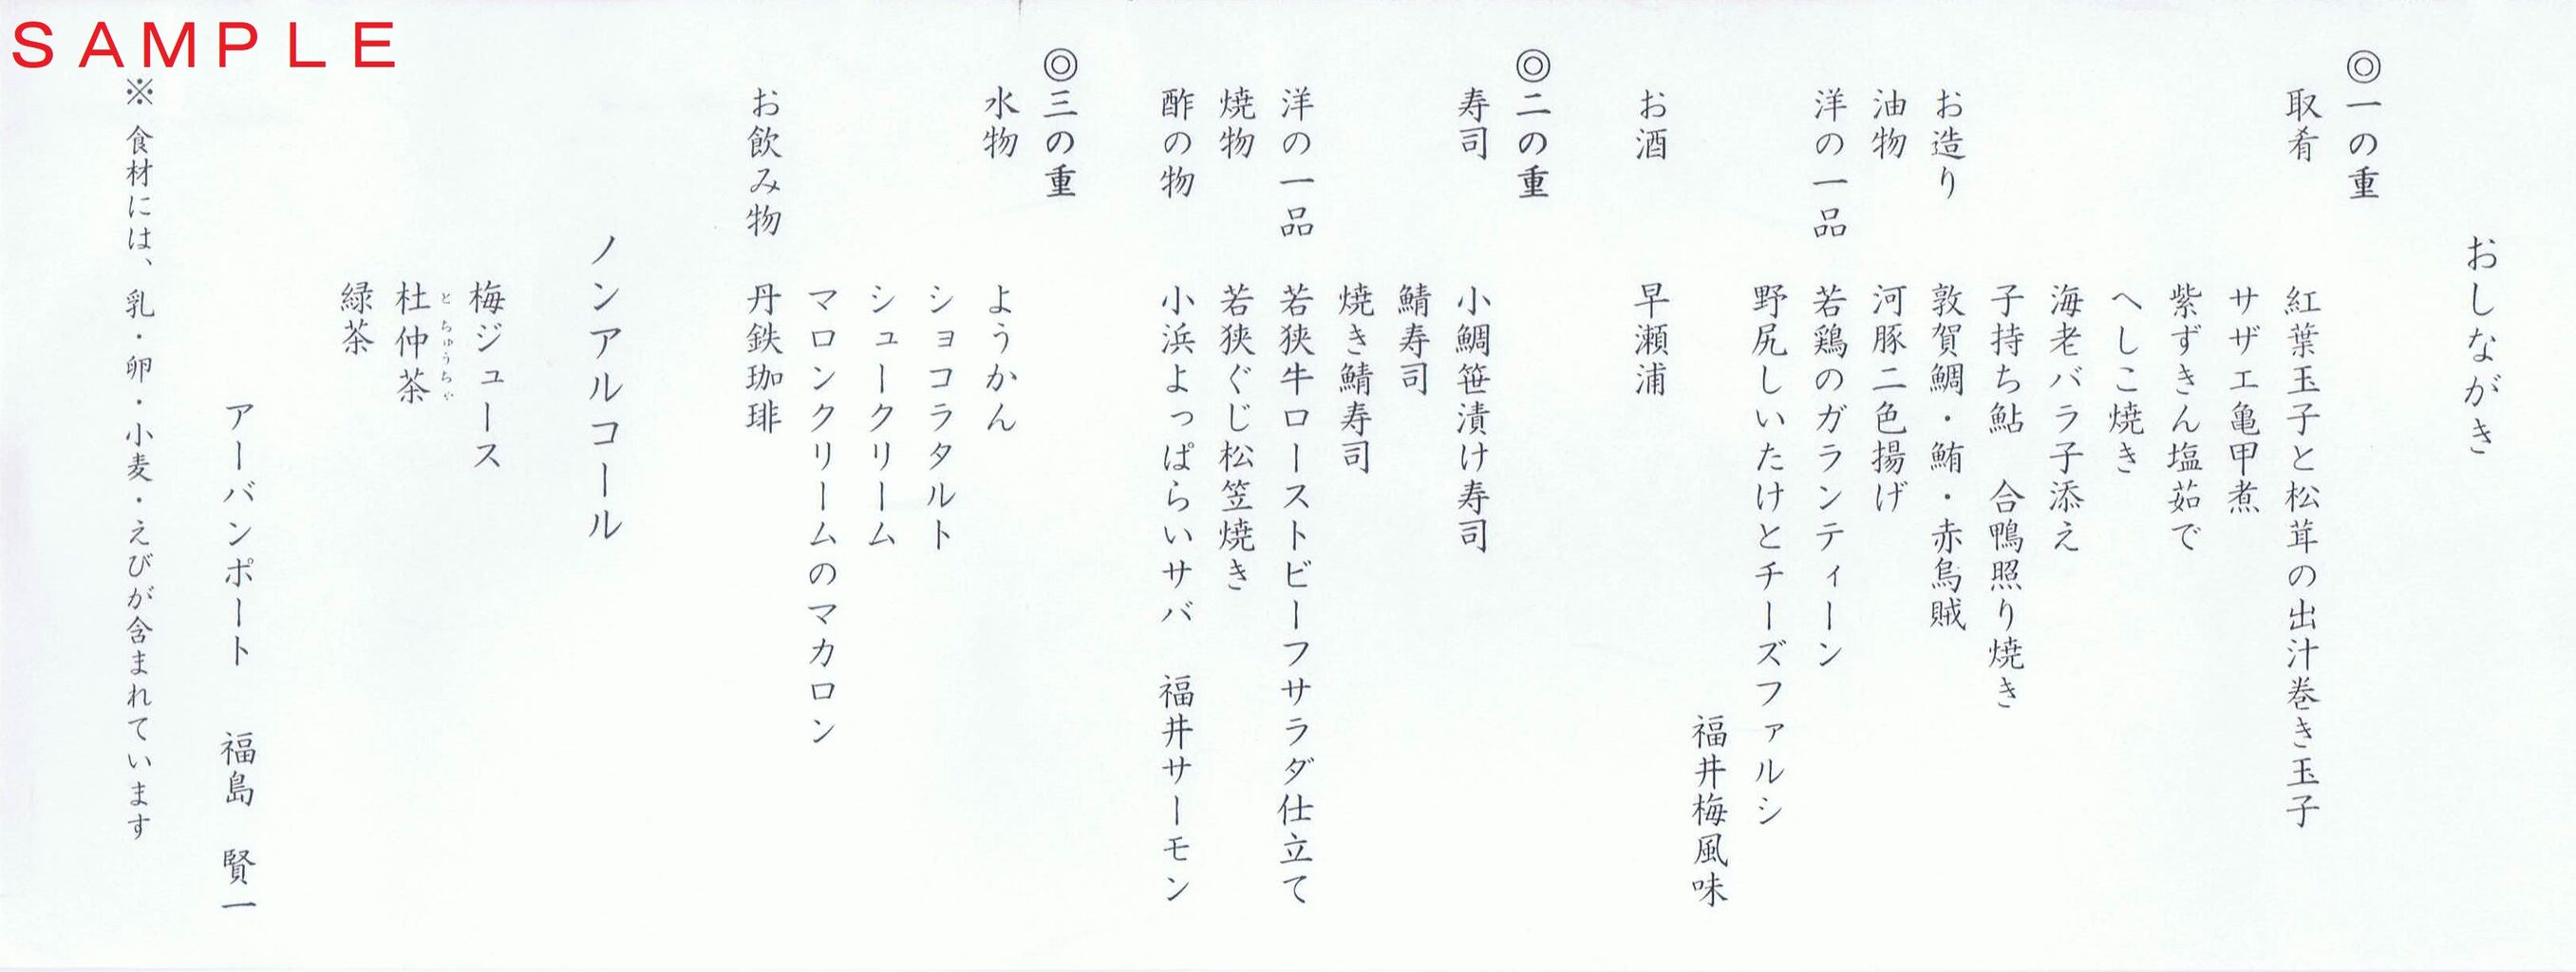 SAMPLE
おしながき
◎一の重
取肴　紅葉玉子と松茸の出汁巻き玉子
サザエ亀甲煮
紫ずきん塩茹で
へしこ焼き
海老バラ子添え
子持ち鮎　合鴨照り焼き
お造り　敦賀鯛・鮪・赤烏賊
油物　河豚二色揚げ
洋の一品　若鶏のガランティーン
野尻しいたけとチーズファルシ
福井梅風味
お酒　早瀬浦
◎二の重
寿司　小鯛笹漬け寿司
鯖寿司
焼き鯖寿司
洋の一品　若狭牛ローストビーフサラダ仕立て
焼物　若狭ぐじ松笠焼き
酢の物　小浜よっぱらいサバ　福井サーモン
◎三の重
水物　ようかん
ショコラタルト
シュークリーム
マロンクリームのマカロン
お飲み物　丹鉄珈琲
ノンアルコール
梅ジュース
とちゅうちゃ
杜仲茶
緑茶
アーバンポート　福島　賢一
※ 食材には、乳・卵・小麦・えびが含まれています